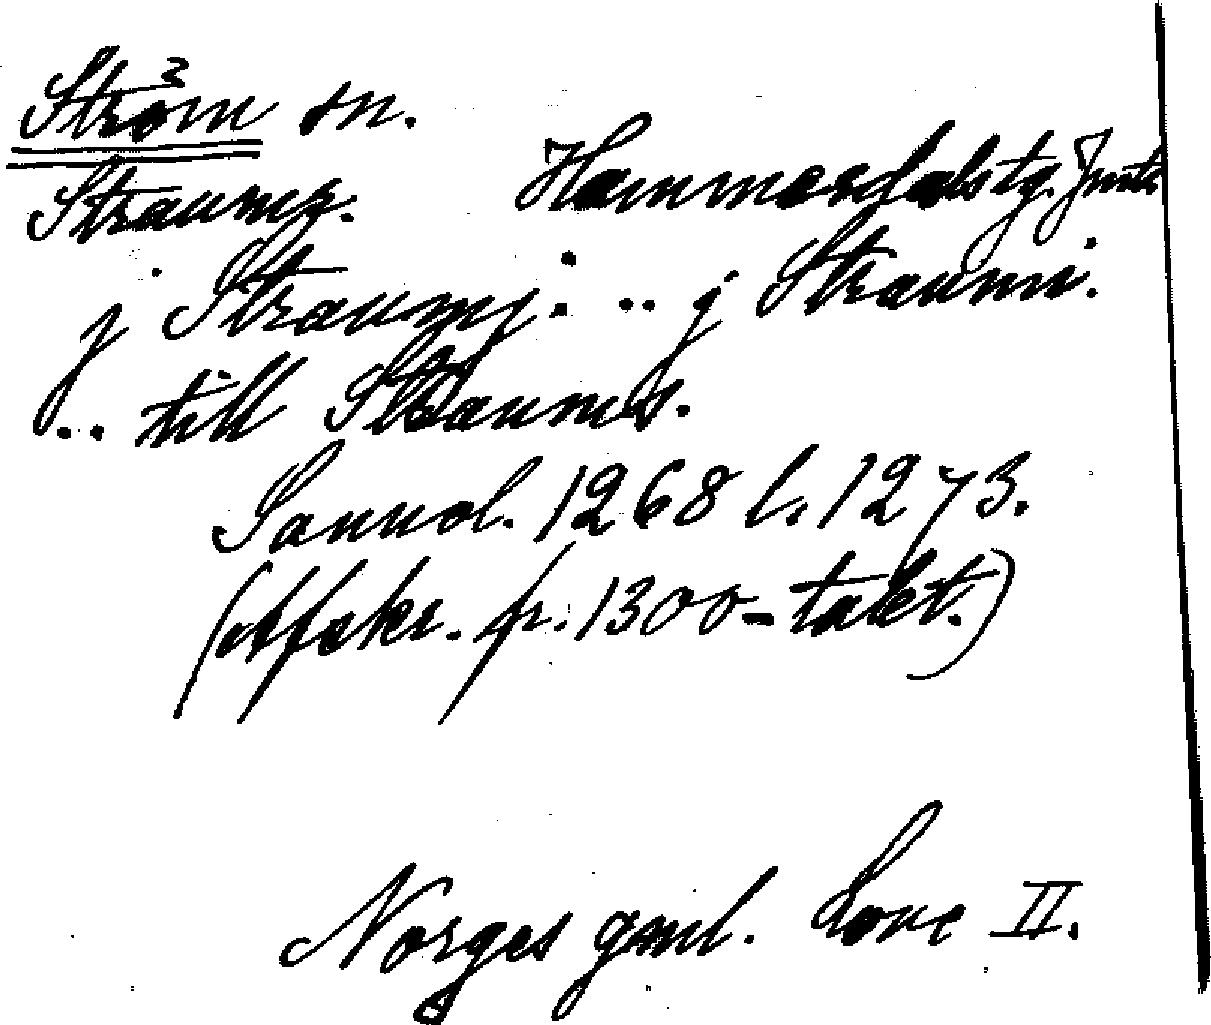 Ström sn.
Straumj. Hammerdals tg. Jmtl
j Straumj. .. j Straumi.
.. till Straums.
Sannol. 1268 l. 1273.
(Afskr. fr. 1300-talet.)
Norges gml. Love II.